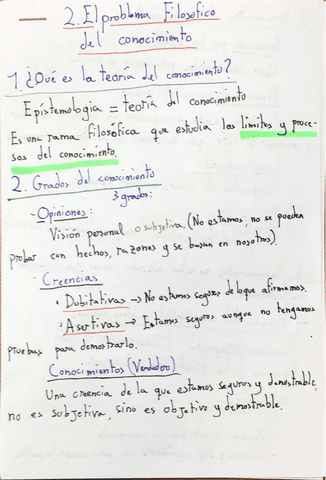 2. El problema Filosófico
del conocimiento
1. ¿Qué es la teoría del conocimiento?
Epistemologia = teoría del conocimiento
Es una rama filosófica que estudia los límites y proce-
sos del conocimiento.
2. Grados del conocimiento
3 grados:
- Opiniones:
Visión personal o subjetiva. (No estamos, no se pueden
probar con hechos, razones y se basan en nosotros).
Creencias
• Dubitativas → No estamos seguros de lo que afirmamos.
• Asertivas → Estamos seguros aunque no tengamos
pruebas para demostrarlo.
Conocimientos (Verdadero)
Una creencia de la que estamos seguros y demostrable,
no es subjetiva, sino es objetivo y demostrable.